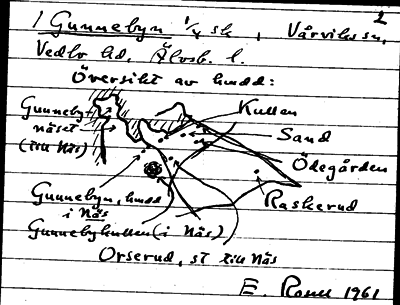 2
1 Gunnebyn 1/4 sk, Vårviks sn,
Vedbo hd, Älvsb. l.
Översikt av hmdd:
Gunneby-
näset
(till Näs)
Kullen
Sand
Ödegården
Raskerud
Gunnebyn, hmdd
i Näs
Gunnebykullen (i Näs)
Orserud, st till Näs
E. 1961